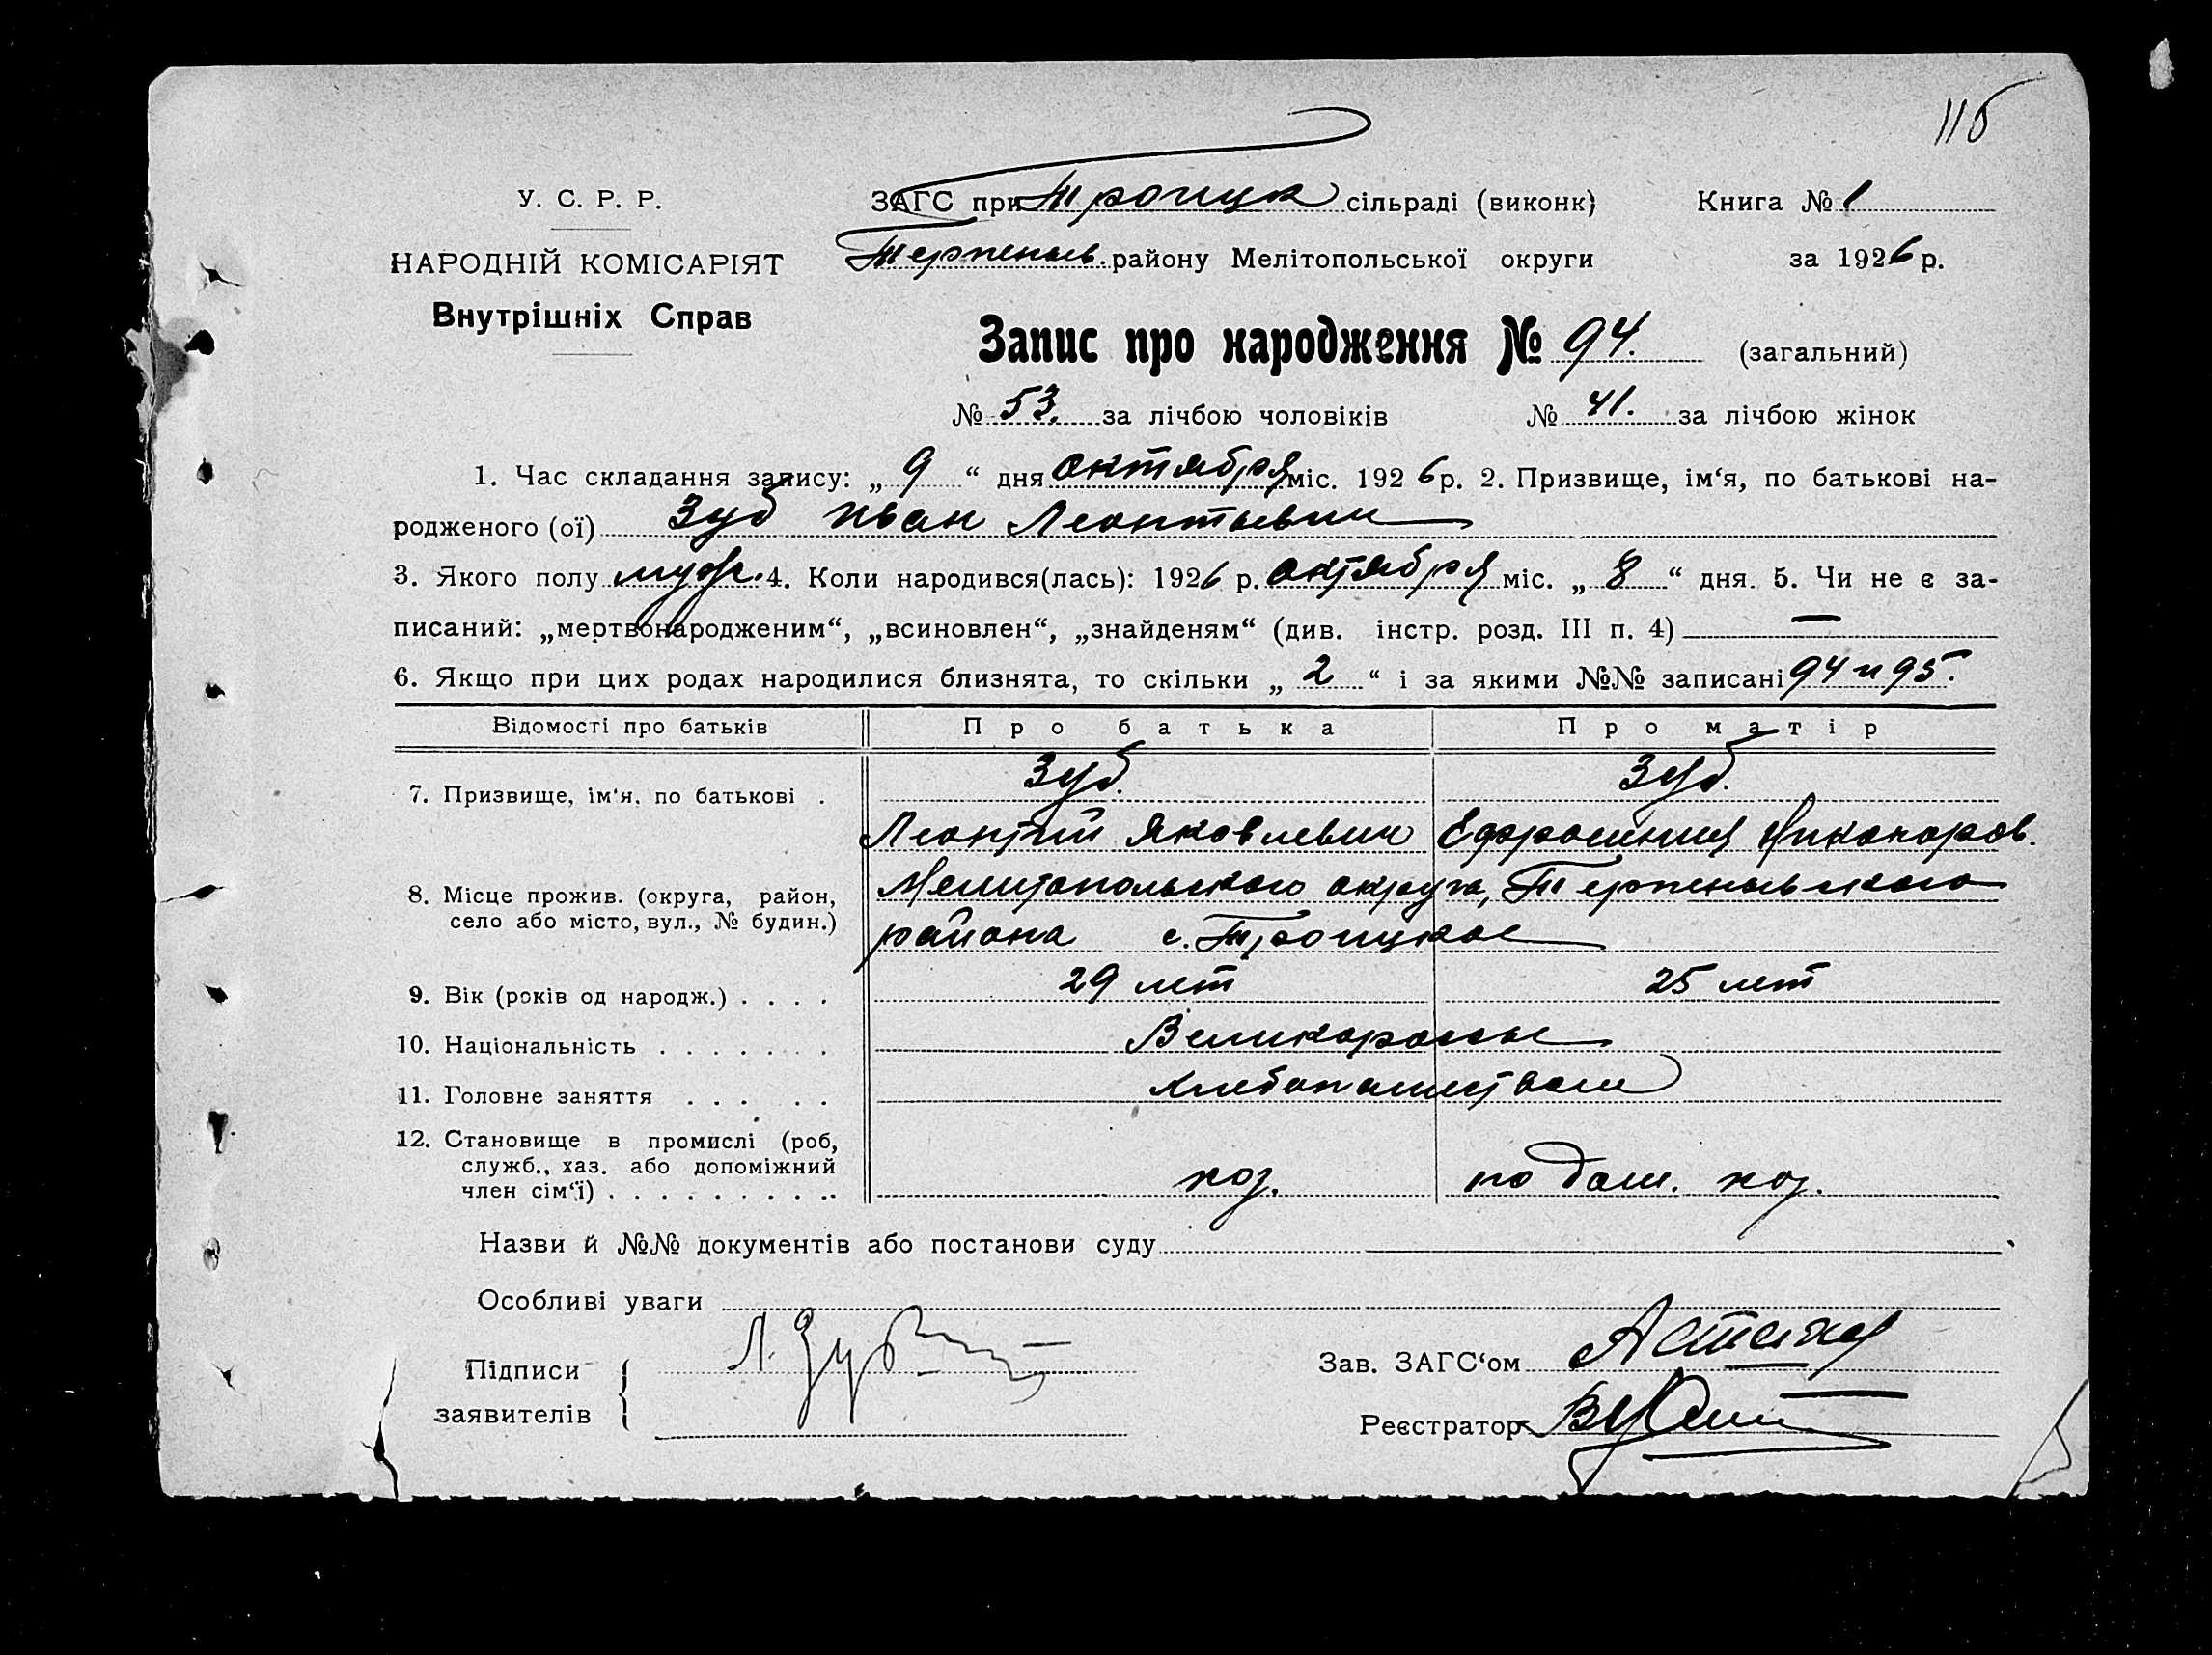 115
У. С. Р. Р.
НАРОДНІЙ КОМІСАРІЯТ
Внутрішніх Справ
ЗАГС при Троицк сільраді (виконк)
Книга № 1
Терпеньев. району Мелітопольської округи
за 1926 р.
Запис про народження № 94. (загальний)
№ 53. за лічбою чоловіків № 41. за лічбою жінок
1. Час складання запису: „ 9 “ дня октября міс. 1926 р. 2. Призвище, ім‘я, по батькові на-
родженого (ої) Зуб Иван Леонтьевич
3. Якого полу муж. 4. Коли народився(лась): 1926 р. октября міс. „ 8 “ дня. 5. Чи не є за-
писаний: „мертвонародженим“, „всиновлен“, „знайденям“ (див. інстр. розд. III п. 4) —
6. Якщо при цих родах народилися близнята, то скільки „ 2 “ і за якими №№ записані 94 и 95.
Відомості про батьків Про батька Про матір
7. Призвище, ім‘я, по батькові . Зуб. Зуб.
Леонтий Яковлевич Ефросиния Никаноров.
8. Місце прожив. (округа, район, Мелитопольского округа, Терпеньевского
село або місто, вул., № будин.) района с. Троицкое
9. Вік (років од народж.) . . . . 29 лет 25 лет
10. Національність . . . . . . . Великороссы
11. Головне заняття . . . . . Хлебопашеством
12. Становище в промислі (роб,
служб., хаз. або допоміжний
член сім‘ї) . . . . . . . . . хоз. по дом. хоз.
Назви й №№ документів або постанови суду
Особливі уваги
Підписи Л. Зуб
заявителів
Зав. ЗАГС‘ом
Реєстратор